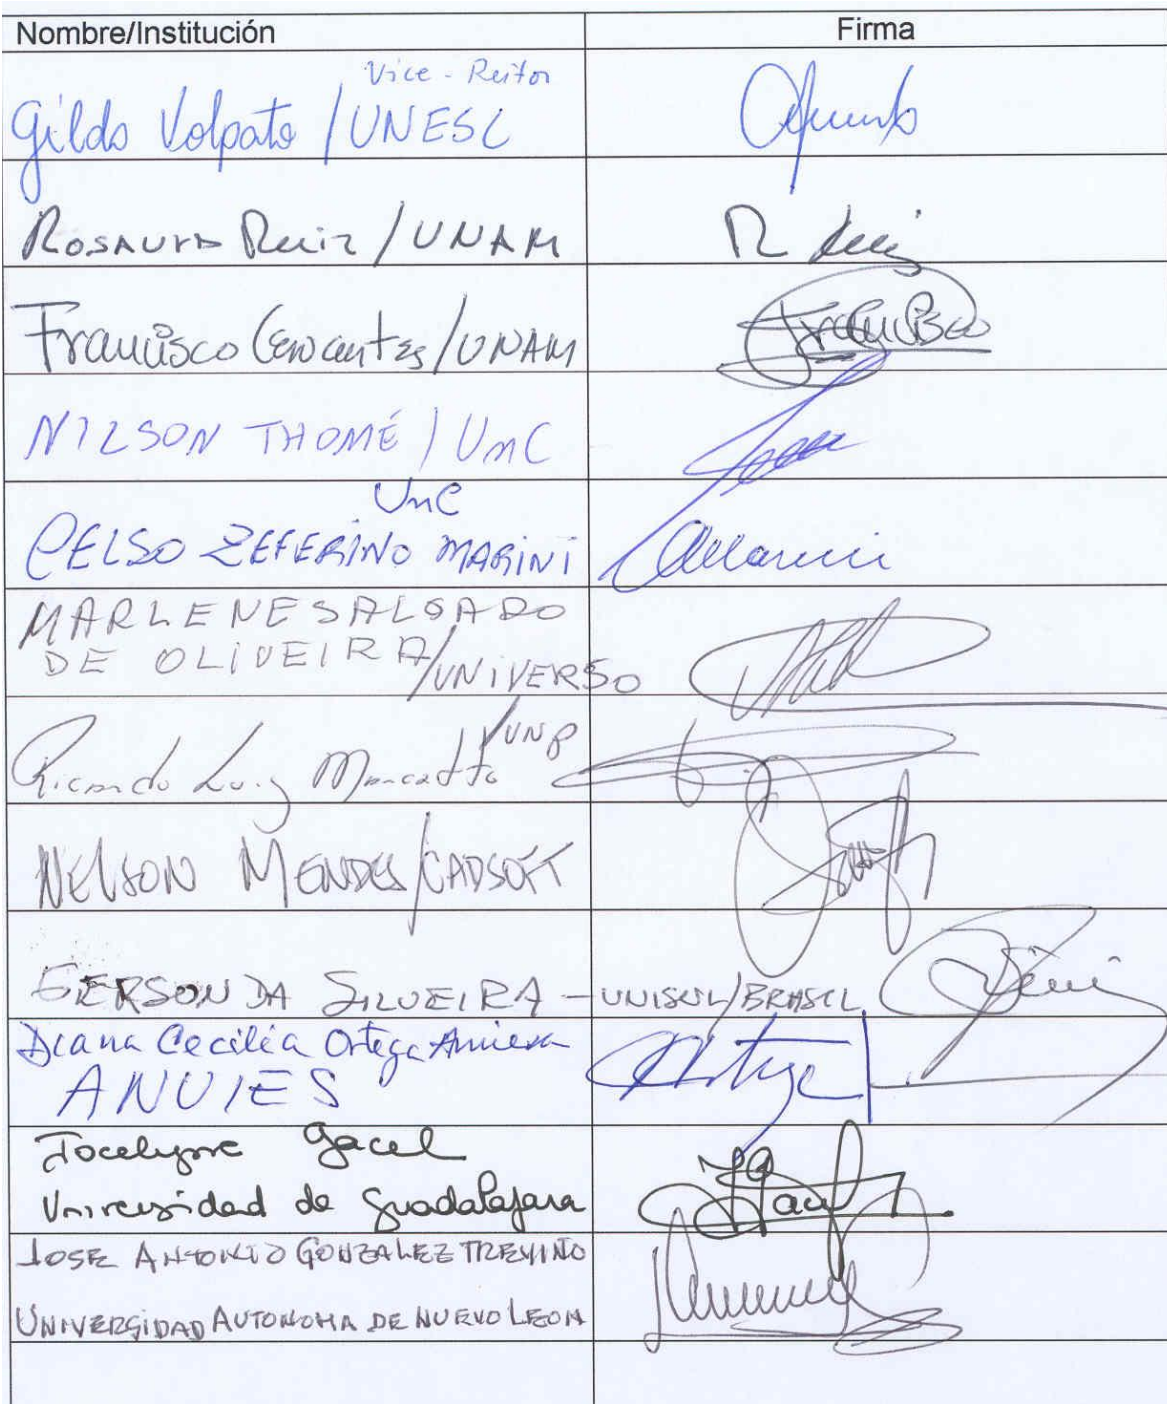 Nombre/Institución Firma
Vice-Reitor
Gildo Volpato / UNESC
ROSAURA Ruiz / UNAM R Ruiz
Francisco Cervantes / UNAM Francisco
NILSON THOMÉ / UnC
UnC
CELSO ZEFERINO MARINI CMarini
MARLENE SALGADO
DE OLIVEIRA / UNIVERSO
/ UNP
Ricardo Luiz
NELSON MENDES / CADSOFT
GERSON DA SILVEIRA - UNISUL/BRASIL
Diana Cecilia Ortega Amieva
ANUIES Ortega
Jocelyne Gacel
Universidad de Guadalajara JGacel
JOSE ANTONIO GONZALEZ TREVIÑO
UNIVERSIDAD AUTONOMA DE NUEVO LEON